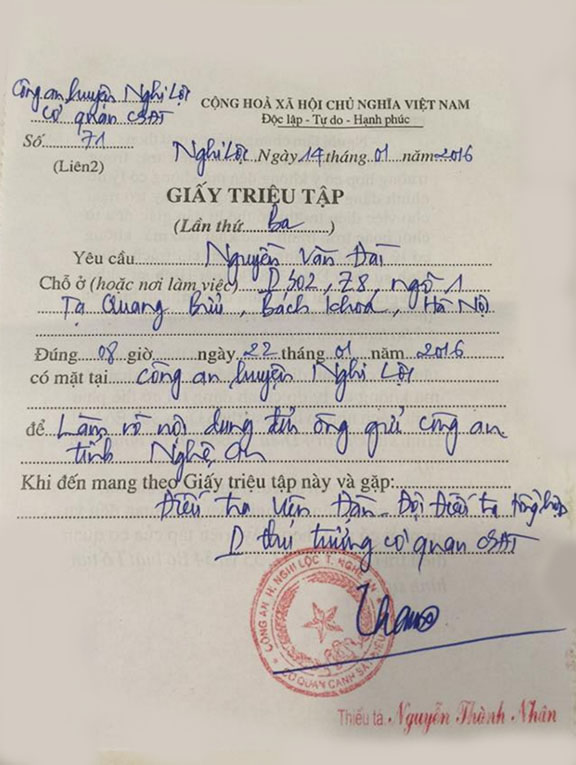 Công an huyện Nghi Lộc
Cơ quan CSĐT
CỘNG HOÀ XÃ HỘI CHỦ NGHĨA VIỆT NAM
Độc lập - Tự do - Hạnh phúc
Số 71
(Liên2)
Nghi Lộc Ngày 14 tháng 01 năm 2016
GIẤY TRIỆU TẬP
(Lần thứ Ba)
Yêu cầu Nguyễn Văn Đài
Chỗ ở (hoặc nơi làm việc) P302, Z8, ngõ 1
Tạ Quang Bửu, Bách Khoa, Hà Nội
Đúng 08 giờ ngày 22 tháng 01 năm 2016
có mặt tại Công an huyện Nghi Lộc
để Làm rõ nội dung đơn ông gửi công an
tỉnh Nghệ An
Khi đến mang theo Giấy triệu tập này và gặp:
Điều tra viên Đàn - Đội Điều tra tổng hợp
thủ trưởng cơ quan CSĐT
CÔNG AN H. NGHI LỘC T. NGHỆ AN
CƠ QUAN CẢNH SÁT ĐIỀU
Thiếu tá: Nguyễn Thành Nhân